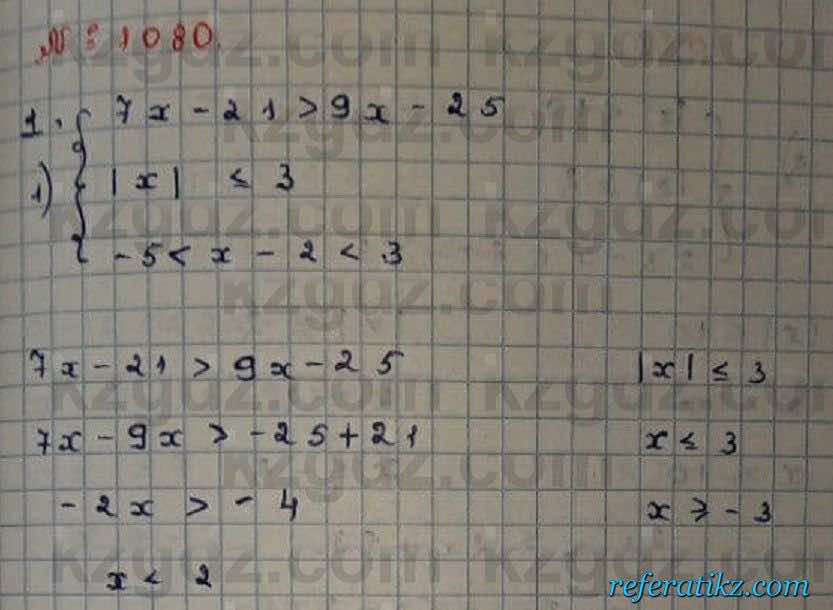 № 1080.
1. 7x - 21 > 9x - 25
1) |x| ≤ 3
-5 < x - 2 < 3
7x - 21 > 9x - 25
7x - 9x > -25 + 21
-2x > -4
x < 2
|x| ≤ 3
x ≤ 3
x ≥ -3
kzgdz.com
referatikz.com